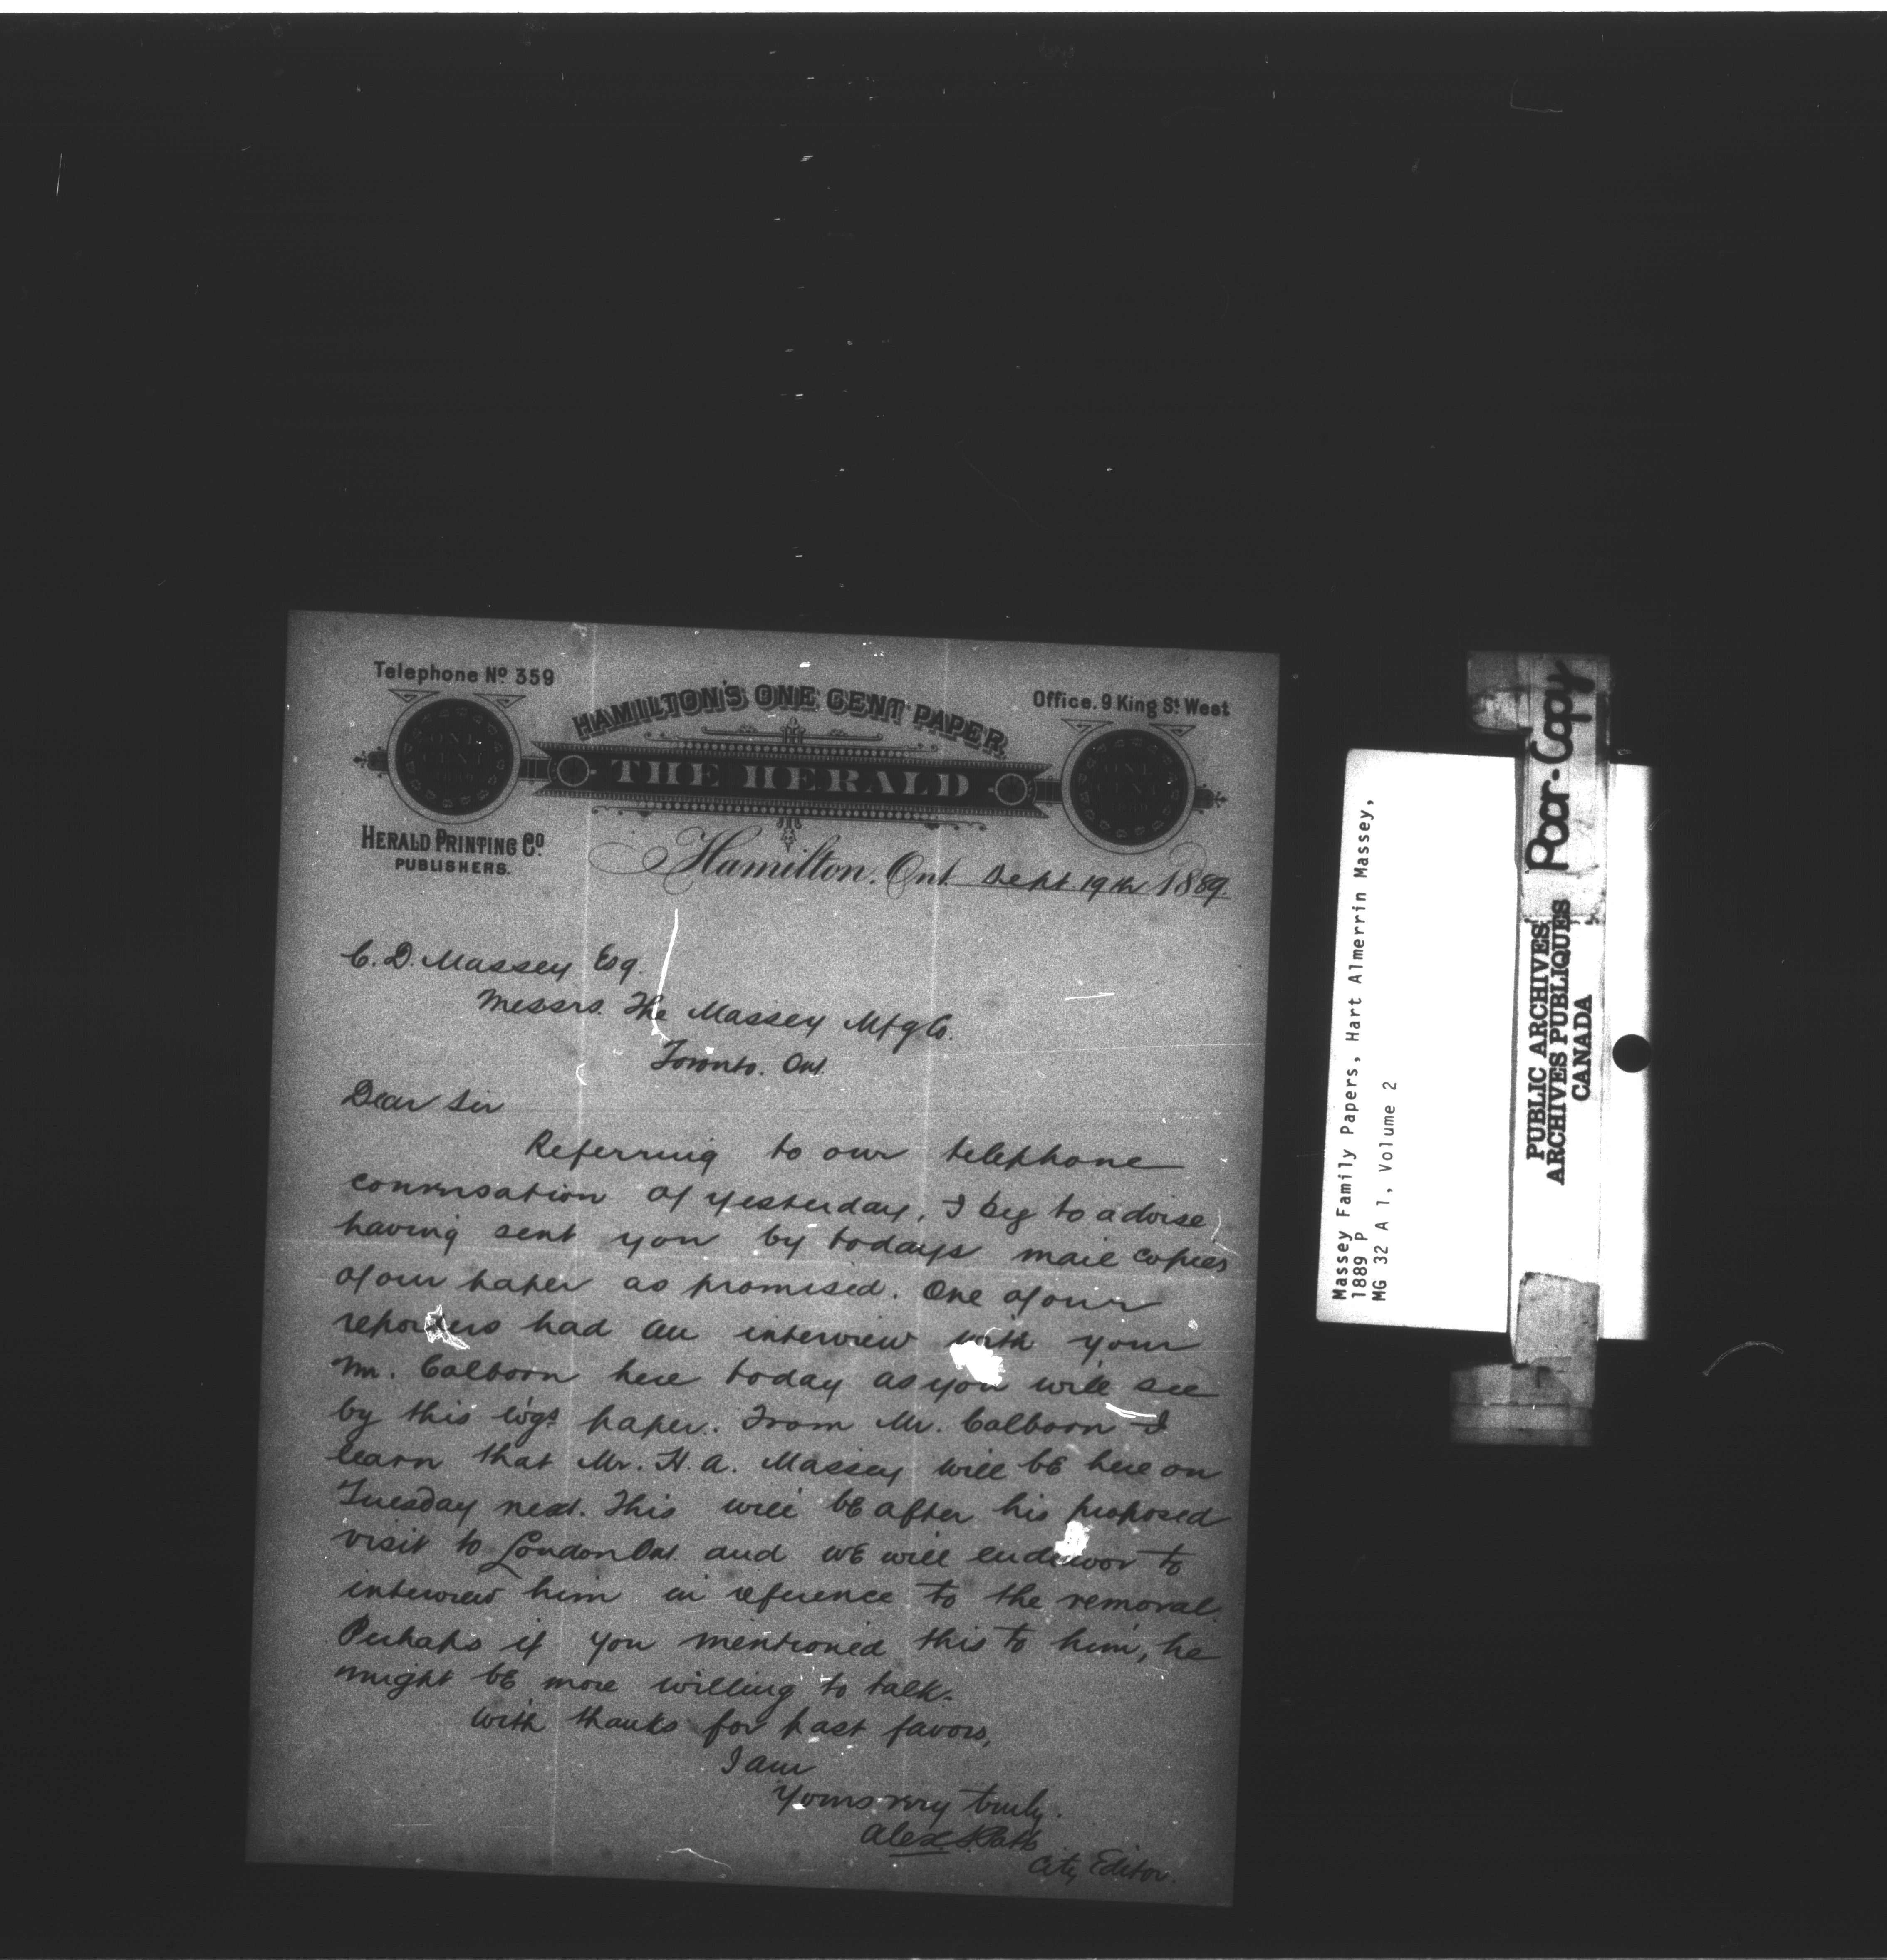 Telephone No. 359
HAMILTON'S ONE CENT PAPER
Office. 9 King St. West
ONE CENT 1889
THE HERALD
ONE CENT 1889
HERALD PRINTING CO.
PUBLISHERS.
Hamilton. Ont. Sept. 19th 1889.
C. D. Massey Esq.
Messrs. The Massey Mfg Co.
Toronto. Ont.
Dear Sir
Referring to our telephone
conversation of yesterday, I beg to advise
having sent you by todays mail copies
of our paper as promised. One of our
reporters had an interview with your
Mr. Calboon here today as you will see
by this evgs paper. From Mr. Calboon I
learn that Mr. H. A. Massey will be here on
Tuesday next. This will be after his proposed
visit to London Ont. and we will endeavor to
interview him in reference to the removal.
Perhaps if you mentioned this to him, he
might be more willing to talk.
With thanks for past favors,
I am
Yours very truly.
Alex.
City Editor.
Massey Family Papers, Hart Almerrin Massey,
1889 P
MG 32 A 1, Volume 2
Poor-Copy
PUBLIC ARCHIVES
ARCHIVES PUBLIQUES
CANADA